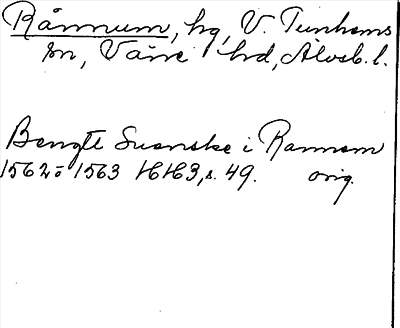 Rånnum, hg, V. Tunhems
sn, Väne hd, Älvsb. l.
Bengtt Suenske i Rannom
1562 o 1563 HH3, s. 49. orig.